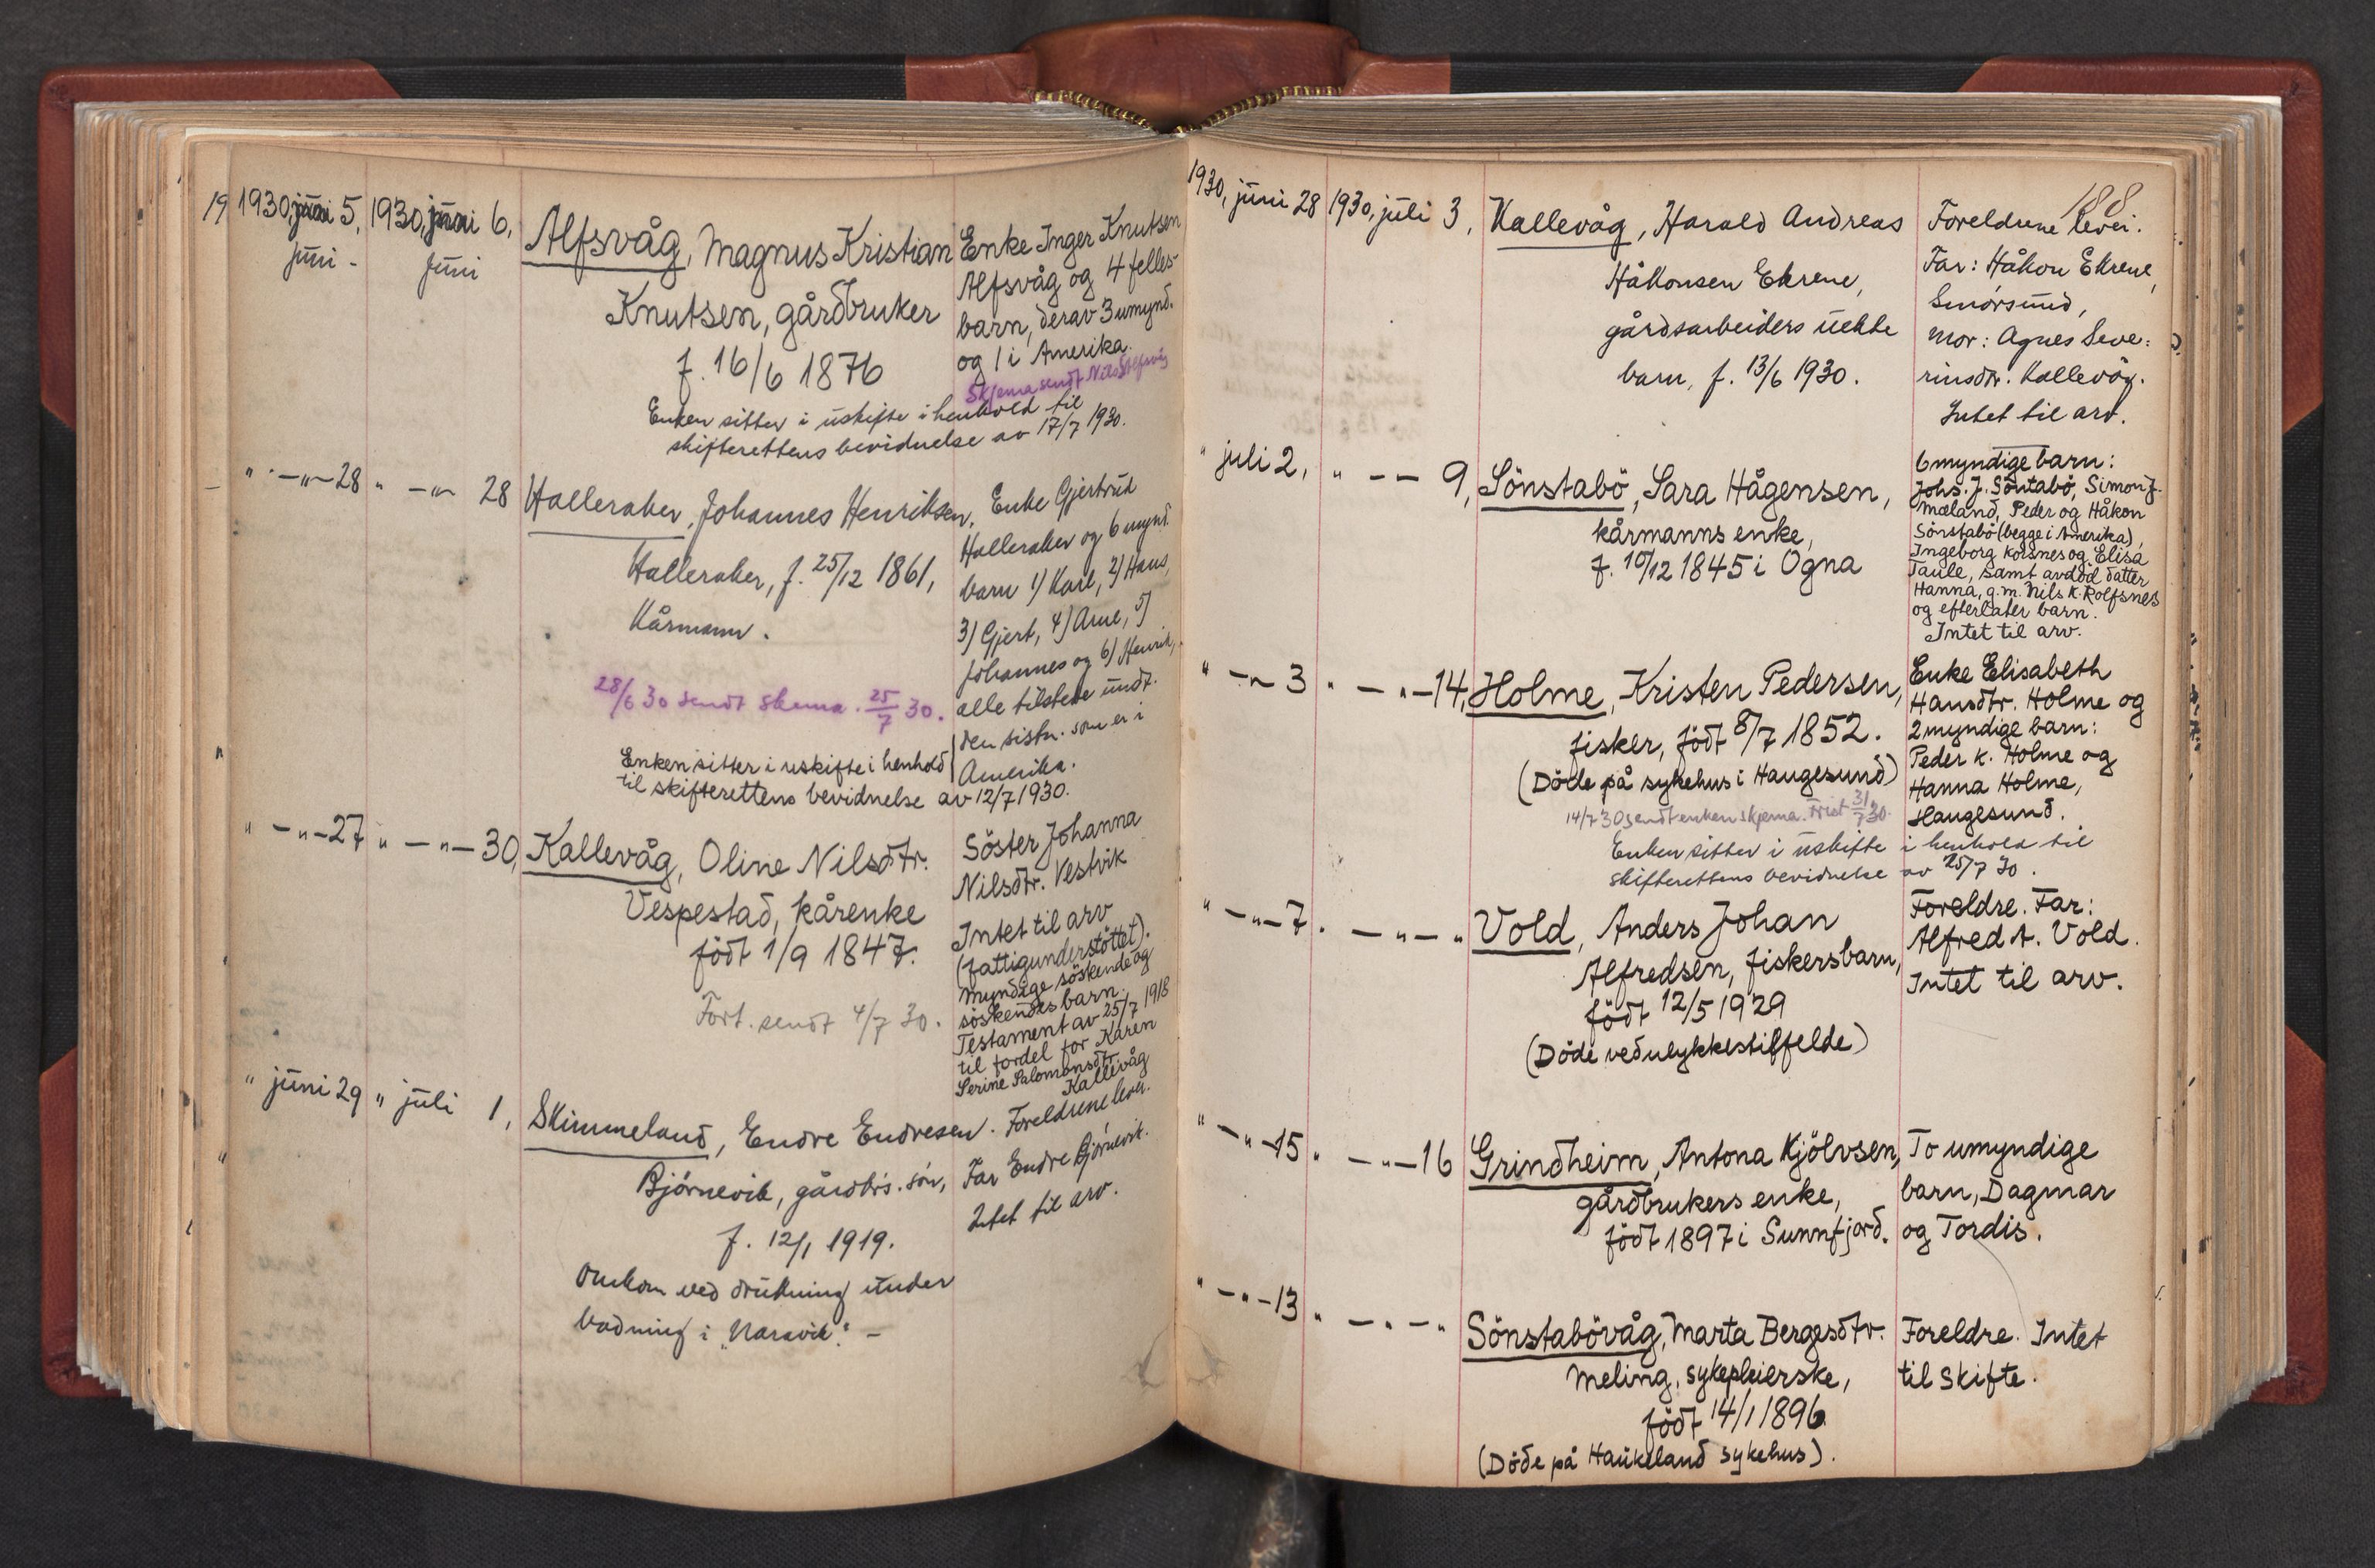 19 1930, juni 5, 1930, juni 6,
juni - juni
Alfsvåg, Magnus Kristian
Knutsen, gårdbruker
f. 16/6 1876
Enke Inger Knutsen
Alfsvåg og 4 felles-
barn, derav 3 umynd.
og 1 i Amerika.
Skjema sendt Nils Alfsvåg
Enken sitter i uskifte i henhold til
skifterettens bevidnelse av 17/7 1930.
" -"- 28 " -"- 28
Halleraker, Johannes Henriksen
Halleraker, f. 25/12 1861,
Kårmann.
Enke Gjertrud
Halleraker og 6 mynd.
barn 1) Karl, 2) Hans,
3) Gjert, 4) Arne, 5)
Johannes og 6) Henrik,
alle tilstede undt.
den sistn. som er i
Amerika.
28/6 30 sendt skema. 25/7 30.
Enken sitter i uskifte i henhold
til skifterettens bevidnelse av 12/7 1930.
" -"- 27 " -"- 30,
Kallevåg, Oline Nilsdtr.
Vespestad, kårenke
födt 1/9 1847.
Fort. sendt 4/7 30.
Söster Johanna
Nilsdtr. Vestvik
Intet til arv
(fattigunderstöttet).
Myndige söskende og
söskendes barn.
Testament av 25/7 1918
til fordel for Karen
Serine Salomonsdtr.
Kallevåg
" juni 29 " juli 1,
Skimmeland, Endre Endresen
Bjørnevik, gårdbrs. søn,
f. 12/1 1919.
Omkom ved drukning under
badning i "Naravik". -
Foreldrene lever.
Far Endre Bjørnevik.
Intet til arv.
188
1930, juni 28 1930, juli 3,
Kallevåg, Harald Andreas
Håkonsen Ekrene,
gårdsarbeiders uekte
barn, f. 13/6 1930.
Foreldrene lever.
Far: Håkon Ekrene,
Smørsund,
Mor: Agnes Seve-
rinsdtr. Kallevåg.
Intet til arv.
" juli 2, " - - 9,
Sönstabö, Sara Hågensen,
kårmanns enke,
f. 10/12 1845 i Ogna
6 myndige barn:
Johs. J. Söntabö, Simon J.
Mæland, Peder og Håkon
Sönstabö (begge i Amerika),
Ingeborg Korsnes og Elisa
Taule, samt avdöd datter
Hanna, g.m. Nils K. Rolfsnes
og efterlater barn.
Intet til arv.
" -"- 3 " -"- 14,
Holme, Kristen Pedersen,
fisker, födt 8/7 1852.
(Döde på sykehus i Haugesund)
14/7 30 sendt enken skjema. Frist 31/7 30.
Enken sitter i uskifte i henhold til
skifterettens bevidnelse av 25/7 30.
Enke Elisabeth
Hansdtr. Holme og
2 myndige barn:
Peder K. Holme og
Hanna Holme,
Haugesund.
" -"- 7 " -"- "
Vold, Anders Johan
Alfredsen, fiskersbarn,
födt 12/5 1929
(Döde ved ulykkestilfelde)
Foreldre. Far:
Alfred A. Vold.
Intet til arv.
" -"- 15 " -"- 16
Grindheim, Antona Kjölvsen,
gårdbrukers enke,
födt 1897 i Sunnfjord.
To umyndige
barn, Dagmar
og Tordis.
" -"- 13 " -"- "
Sönstabövåg, Marta Bergesdtr.
Meling, sykepleierske,
födt 14/1 1896
(Döde på Haukeland sykehus).
Foreldre. Intet
til skifte.